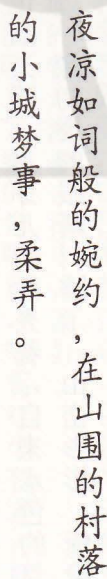 夜凉如词般的婉约，在山围的村落
的小城梦事，柔弄。